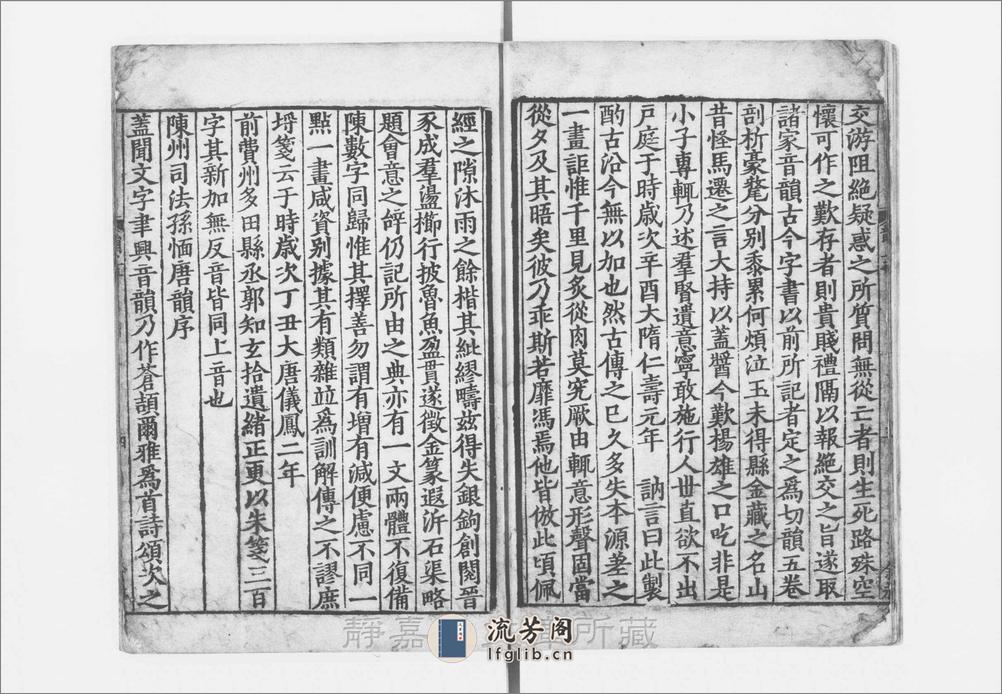 交游阻絶疑惑之所質問無從亡者則生死路殊空
懷可作之歎存者則貴賤禮隔以報絶交之旨遂取
諸家音韻古今字書以前所記者定之爲切韻五卷
剖析豪氂分别黍累何煩泣玉未得縣金藏之名山
昔怪馬遷之言大持以蓋醬今歎楊雄之口吃非是
小子專輒乃述羣賢遺意寧敢施行人丗直欲不出
戸庭于時歳次辛酉大隋仁壽元年　訥言曰此製
酌古沿今無以加也然古傳之已久多失本源差之
一畫詎惟千里見炙從肉莫究厥由輒意形聲固當
從夕及其晤矣彼乃乖斯若靡馮焉他皆倣此頃佩
經之隙沐雨之餘楷其紕繆疇玆得失銀鉤創閱晉
豕成羣盪櫛行披魯魚盈貫遂徵金篆遐泝石渠略
題會意之辝仍記所由之典亦有一文兩體不復備
陳數字同歸惟其擇善勿謂有增有減便慮不同一
㸃一畫咸資别據其有類雜並爲訓解傳之不謬庶
埒箋云于時歳次丁丑大唐儀鳳二年
前費州多田縣丞郭知玄拾遺緒正更以朱箋三百
字其新加無反音皆同上音也
陳州司法孫愐唐韻序
蓋聞文字聿興音韻乃作蒼頡爾雅爲首詩頌次之
靜嘉所藏
流芳阁
lfglib.cn